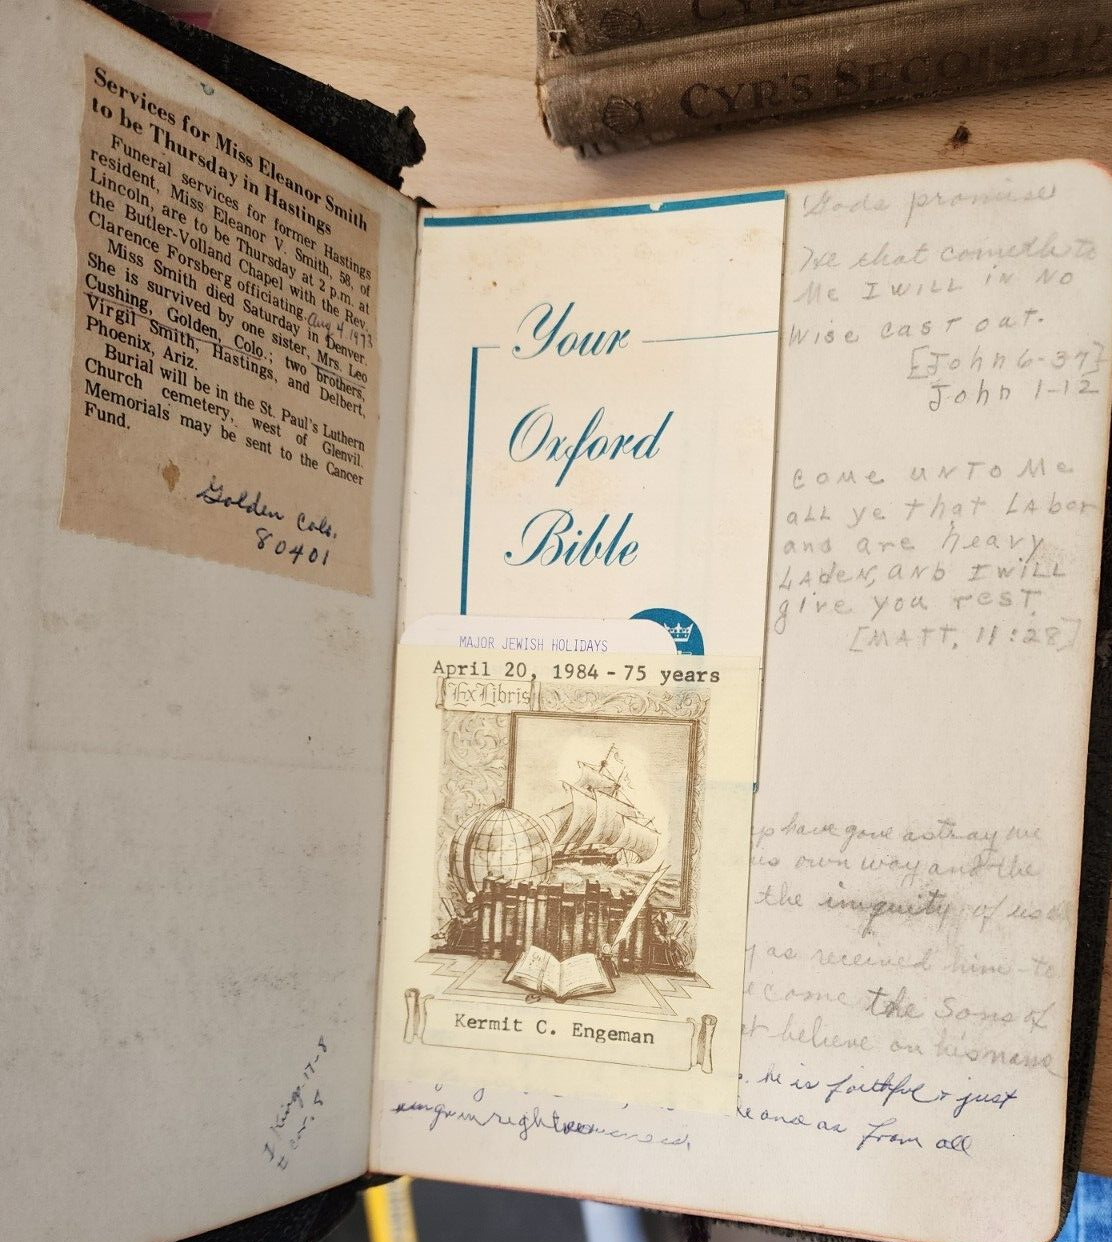 CYR'S SECOND
Services for Miss Eleanor Smith
to be Thursday in Hastings
Funeral services for former Hastings
resident, Miss Eleanor V. Smith, 58, of
Lincoln, are to be Thursday at 2 p.m. at
the Butler-Volland Chapel with the Rev.
Clarence Forsberg officiating. Aug 4, 1973
Miss Smith died Saturday in Denver.
She is survived by one sister, Mrs. Leo
Cushing, Golden, Colo.; two brothers,
Virgil Smith, Hastings, and Delbert,
Phoenix, Ariz.
Burial will be in the St. Paul's Luthern
Church cemetery, west of Glenvil.
Memorials may be sent to the Cancer
Fund.
Golden Colo.
80401
I Kings 17-8
Your
Oxford
Bible
MAJOR JEWISH HOLIDAYS
April 20, 1984 - 75 years
Ex Libris
Kermit C. Engeman
Gods promise
He that cometh to
Me I WILL IN NO
Wise cast out.
[John 6-37]
John 1-12
COME UNTO Me
aLL ye that LAbor
and are heavy
LAdeN, ANb I WILL
give you resT.
[MATT. 11:28]
have gone astray we
own way and the
the iniquity of us
as received him - to
the Sons of
believe on his name
he is faithful + just
and as from all